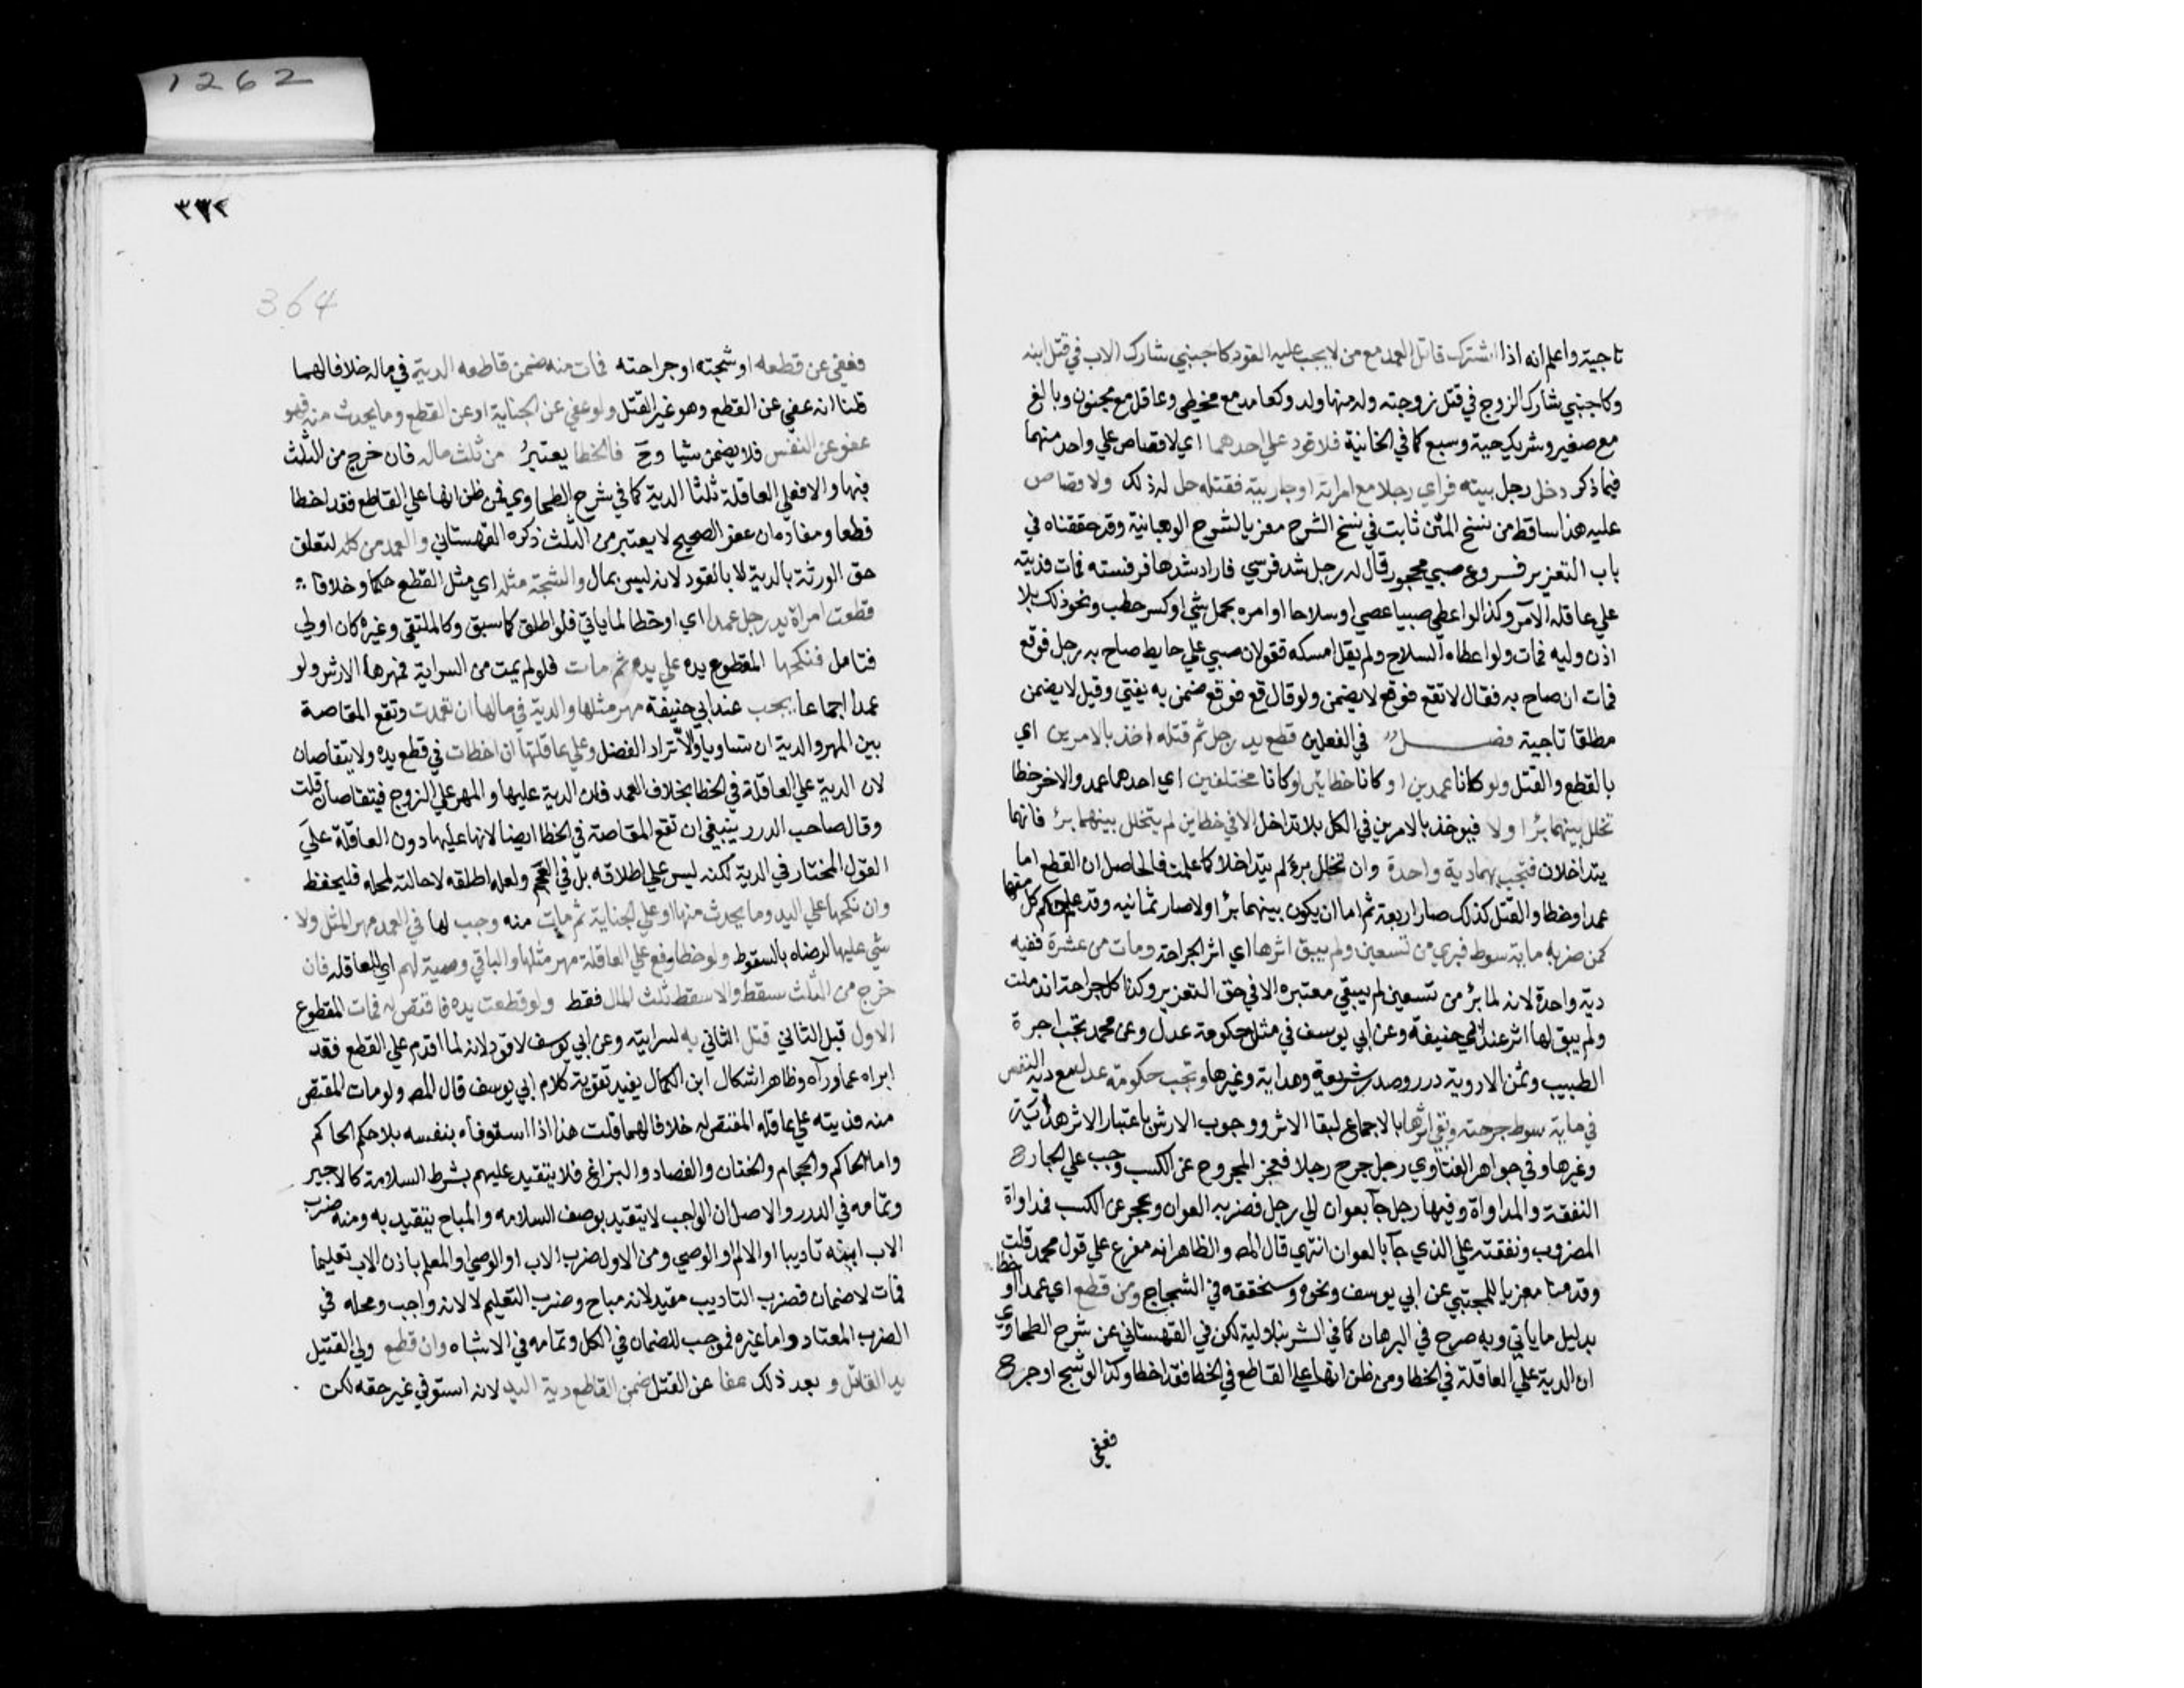 تاجية واعلم انه اذا اشترك قاتل العمد مع من لا يجب عليه القود كاجنبي شارك الاب في قتل ابنه
وكاجنبي شارك الزوج في قتل زوجته وله منها ولد وكعامد مع مخطي وعاقل مع مجنون وبالغ
مع صغير وشريك حية وسبع كما في الخانية فلا قود علي احدهما اي لا قصاص علي واحد منهما
فيما ذكر دخل رجل بيته فراي رجلا مع امراته او جاريته فقتله حل له ذلك ولا قصاص
عليه هذا ساقط من نسخ المتن ثابت في نسخ الشرح معزيا لشرح الوهبانية وقد حققناه في
باب التعزير فروع صبي محجور قال له رجل شد فرسي فاراد شدها فرفسته فمات فديته
علي عاقلة الآمر وكذا لو اعطي صبيا عصي او سلاحا او امره بحمل شي او كسر حطب ونحو ذلك بلا
اذن وليه فمات ولو اعطاه السلاح ولم يقل امسكه فقولان صبي علي حايط صاح به رجل فوقع
فمات ان صاح به فقال لا تقع فوقع لا يضمن ولو قال قع فوقع ضمن به يفتي وقيل لا يضمن
مطلقا تاجية فصل في الفعلين قطع يد رجل ثم قتله اخذ بالامرين اي
بالقطع والقتل ولو كانا عمدين او كانا خطائين او كانا مختلفين اي احدهما عمد والاخر خطا
تخلل بينهما برأ او لا فيوخذ بالامرين في الكل بلا تداخل الا في خطاين لم يتخلل بينهما برأ فانهما
يتداخلان فتجب بهما دية واحدة وان تخلل برء لم يتداخلا كما علمت فالحاصل ان القطع اما
عمدا وخطا والقتل كذلك صار اربعة ثم اما ان يكون بينهما برأ اولا صار ثمانيه وقد علم حكم كل منها
كمن ضربه ماية سوط فبري من تسعين ولم يبق اثرها اي اثر الجراحة ومات من عشرة ففيه
دية واحدة لانه لما برأ من تسعين لم يبقي معتبره الا في حق التعزير وكذا كل جراحة اندملت
ولم يبق لها اثر عند ابي حنيفة وعن ابي يوسف في مثله حكومة عدل وعن محمد تجب اجرة
الطبيب وثمن الادوية درر وصدر شريعة وهداية وغيرها وتجب حكومة عدل مع دية النفس
في ماية سوط جرحته وبقي اثرها بالاجماع لبقا الاثر ووجوب الارش باعتبار الاثر هداية
وغيرها وفي جواهر الفتاوي رجل جرح رجلا فعجز المجروح عن الكسب وجب علي الجارح
النفقة والمداواة وفيها رجل جآ بعوان الي رجل فضربه العوان وعجز عن الكسب فمداواة
المضروب ونفقته علي الذي جآ بالعوان انتهي قال المصـ والظاهر انه مفرع علي قول محمد قلت
وقدمنا معزيا للمجتبي عن ابي يوسف ونحوه وسنحققه في الشجاج ومن قطع اي عمدا او خطا
بدليل ما ياتي وبه صرح في البرهان كما في الشرنبلالية لكن في القهستاني عن شرح الطحاوي
ان الدية علي العاقلة في الخطا ومن ظن انها علي القاطع في الخطا فقد اخطا وكذا لو شج او جرح
فعفي
1262
٣٧٢
364
فعفي عن قطعه او شجته او جراحته فمات منه ضمن قاطعه الدية في ماله خلافا لهما
قلنا انه عفي عن القطع وهو غير القتل ولو عفي عن الجناية او عن القطع وما يحدث منه فهو
عفو عن النفس فلا يضمن شيا وح فالخطا يعتبر من ثلث ماله فان خرج من الثلث
فبها والا فعلي العاقلة ثلثا الدية كما في شرح الطحاوي فمن ظن انها علي القاطع فقد اخطا
قطعا ومفاده ان عفو الصحيح لا يعتبر من الثلث ذكره القهستاني والعمد من كله لتعلق
حق الورثة بالدية لا بالقود لانه ليس بمال والشجة مثله اي مثل القطع حكما وخلافا
قطعت امراة يد رجل عمدا اي او خطا لما ياتي فلو اطلق كما سبق وكالملتقي وغيره كان اولي
فتامل فنكحها المقطوع يده علي يده ثم مات فلو لم يمت من السراية فمهرها الارش ولو
عمدا اجماعا يجب عند ابي حنيفة مهر مثلها والدية في مالها ان تعمدت وتقع المقاصة
بين المهر والدية ان تساويا والا تراد الفضل وعلي عاقلتها ان اخطات في قطع يده ولا يتقاصان
لان الدية علي العاقلة في الخطا بخلاف العمد فان الدية عليها والمهر علي الزوج فيتقاصان قلت
وقال صاحب الدرر ينبغي ان تقع المقاصة في الخطا ايضا لانها عليها دون العاقلة علي
القول المختار في الدية لكنه ليس علي اطلاقه بل في العجم ولعله اطلقه لاحالته لمحله فليحفظ
وان نكحها علي اليد وما يحدث منها او علي الجناية ثم مات منه وجب لها في العمد مهر المثل ولا
شي عليها لرضاه بالسقوط ولو خطا رفع علي العاقلة مهر مثلها والباقي وصية لهم اي للعاقلة فان
خرج من الثلث سقط والا سقط ثلث المال فقط ولو قطعت يده فاقتص له فمات المقطوع
الاول قبل الثاني قتل الثاني به لسرايته وعن ابي يوسف لا قود لانه لما اقدم علي القطع فقد
ابراه عما ورآه وظاهر اشكال ابن الكمال يفيد تقوية كلام ابي يوسف قال المصـ ولو مات المقتص
منه فديته علي عاقلة المقتص له خلافا لهما قلت هذا اذا استوفاه بنفسه بلا حكم الحاكم
واما الحاكم والحجام والختان والفصاد والبزاغ فلا يتقيد عليهم بشرط السلامة كالاجير
وتمامه في الدرر والاصل ان الواجب لا يتقيد بوصف السلامه والمباح يتقيد به ومنه ضرب
الاب ابنه تاديبا او الام او الوصي ومن الاول ضرب الاب او الوصي او المعلم باذن الاب تعليما
فمات لا ضمان فضرب التاديب مقيد لانه مباح وضرب التعليم لا لانه واجب ومحله في
الضرب المعتاد واما غيره فموجب للضمان في الكل وتمامه في الاشباه وان قطع ولي القتيل
يد القاتل و بعد ذلك عفا عن القتل ضمن القاطع دية اليد لانه استوفي غير حقه لكن